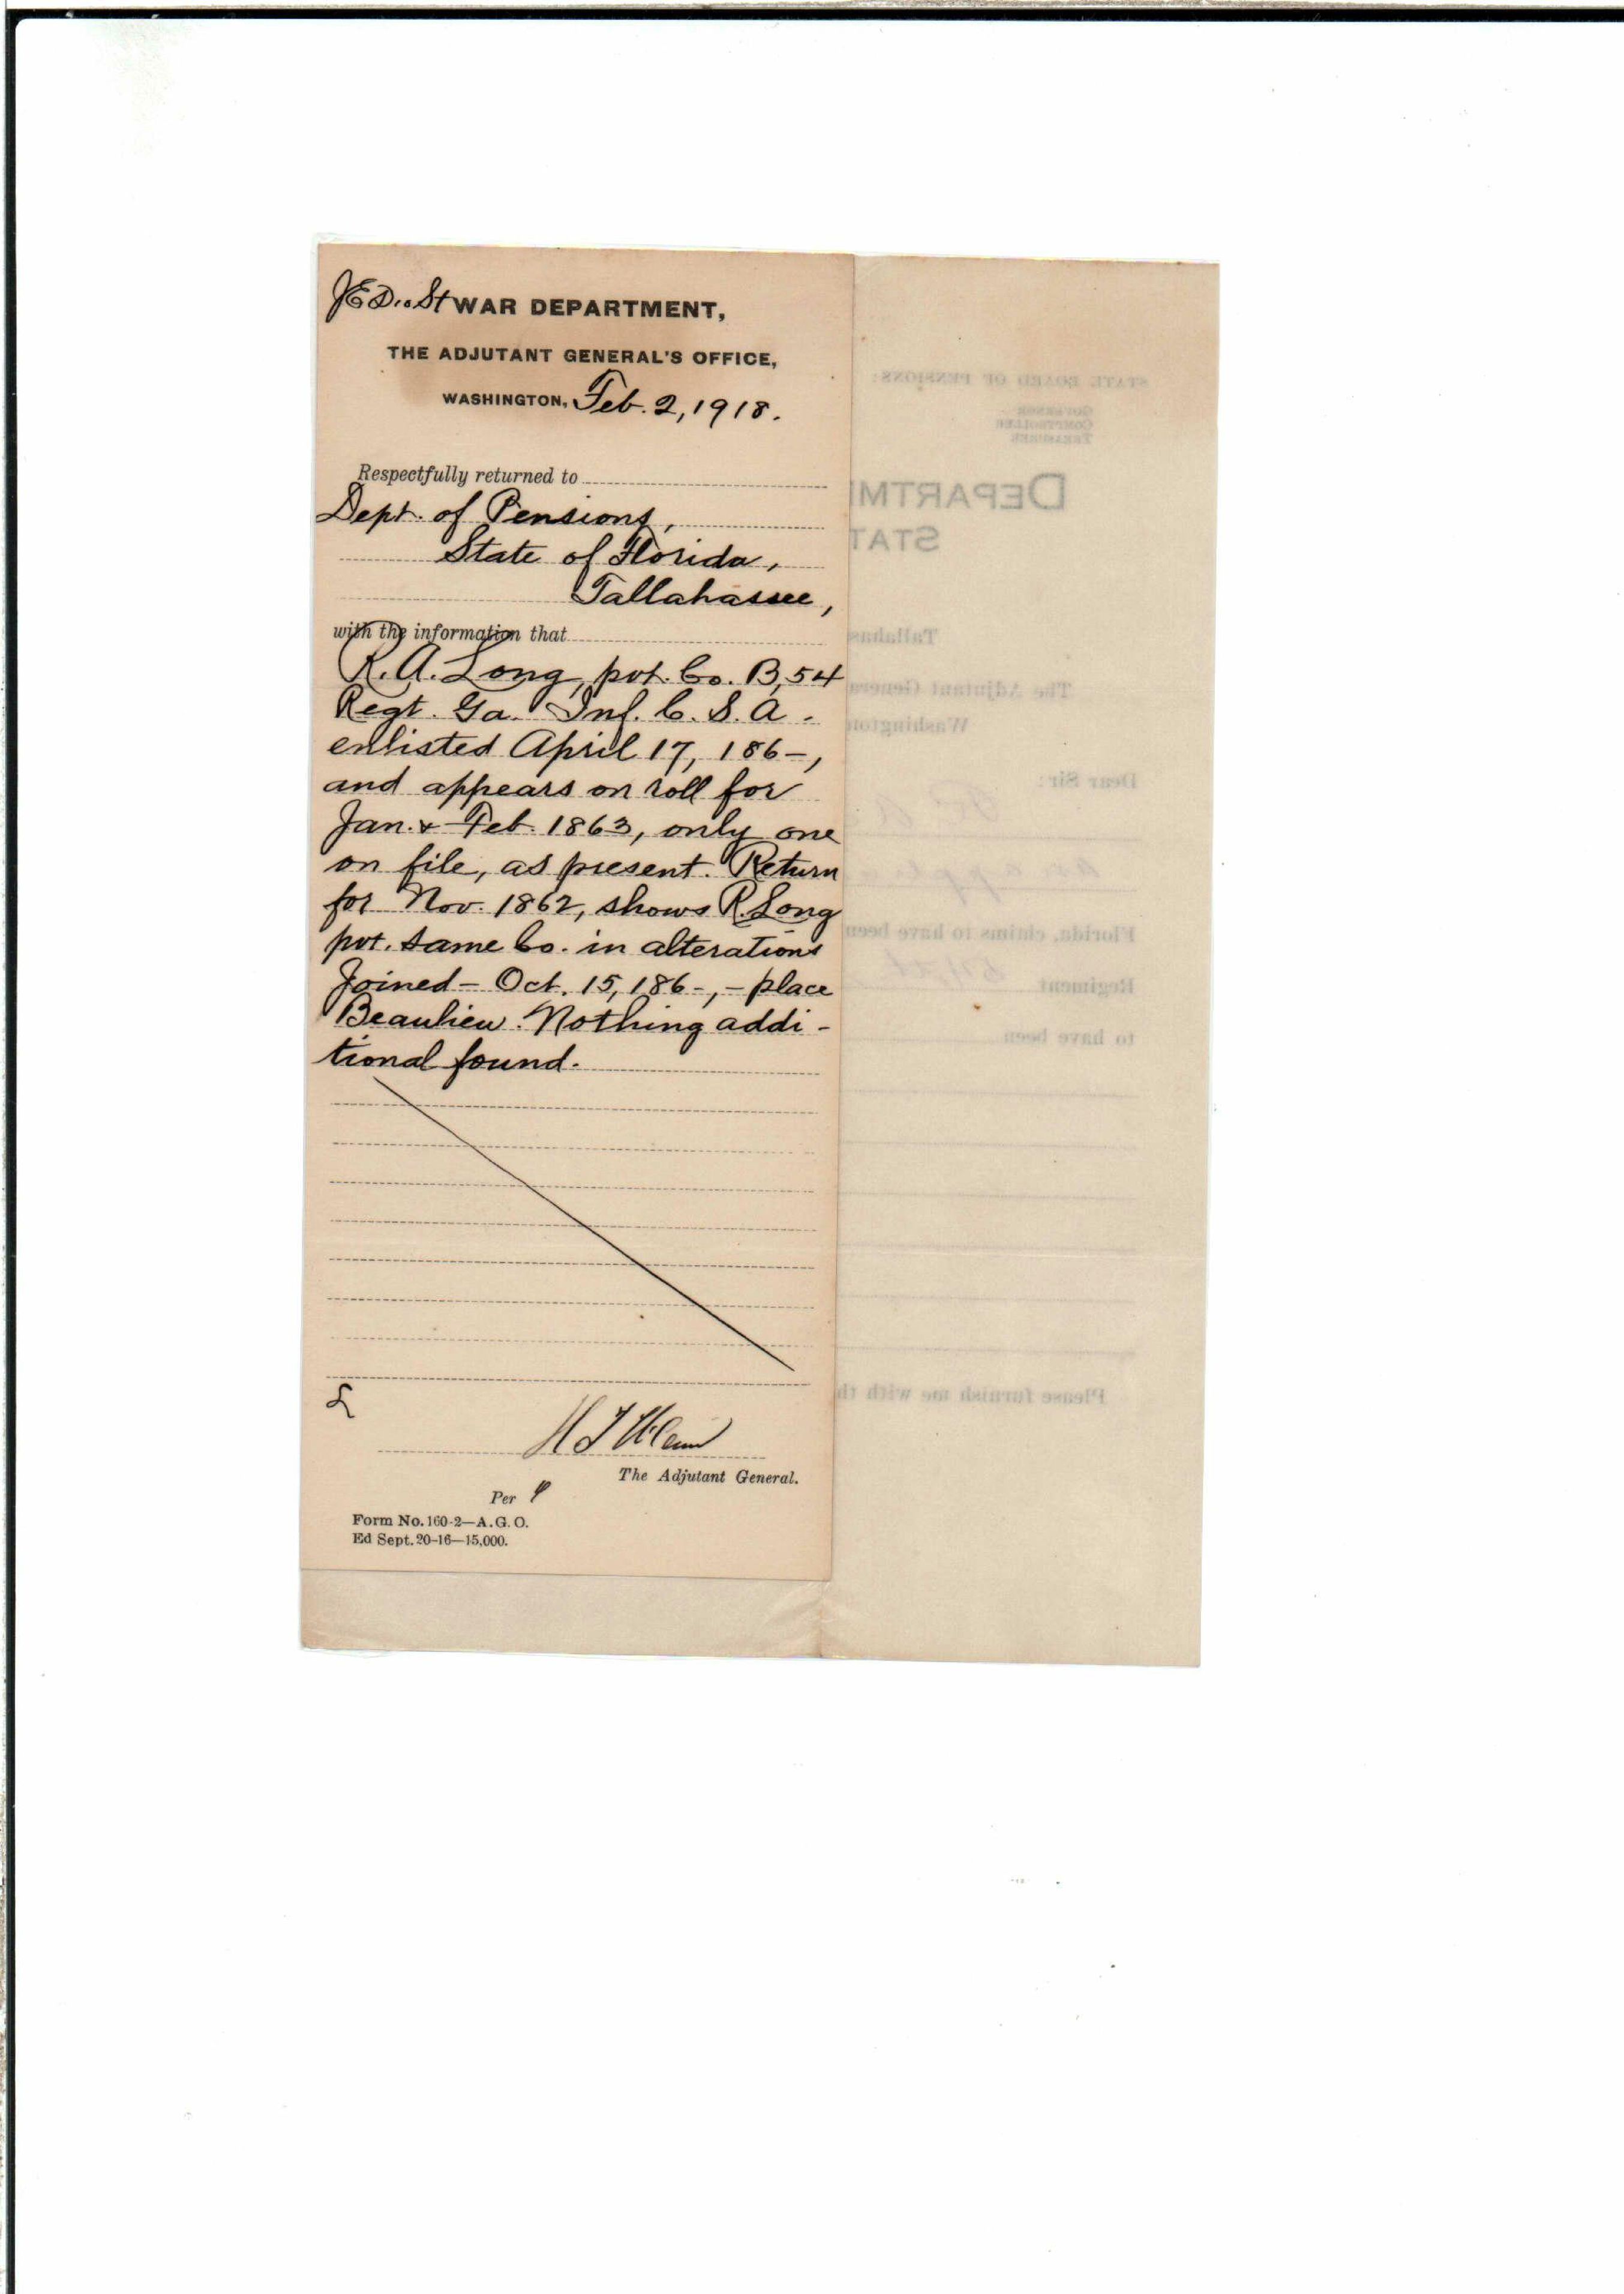 WAR DEPARTMENT,
THE ADJUTANT GENERAL'S OFFICE,
WASHINGTON, Feb. 2, 1918.
Respectfully returned to
Dept. of Pensions,
State of Florida,
Tallahassee,
with the information that
R. A. Long, pvt. Co. B, 54
Regt. Ga. Inf. C. S. A.
enlisted April 17, 186-,
and appears on roll for
Jan. & Feb. 1863, only one
on file, as present. Return
for Nov. 1862, shows R. Long
pvt. same Co. in alterations
Joined - Oct. 15, 186-, - place
Beaulieu. Nothing addi-
tional found.
The Adjutant General.
Per
Form No. 160-2—A. G. O.
Ed Sept. 20-16—15,000.
STATE BOARD OF PENSIONS:
GOVERNOR
COMPTROLLER
TREASURER
DEPARTME
STAT
Tallahas
The Adjutant Genera
Washington
Dear Sir:
Florida, claims to have been
Regiment
to have been
Please furnish me with th